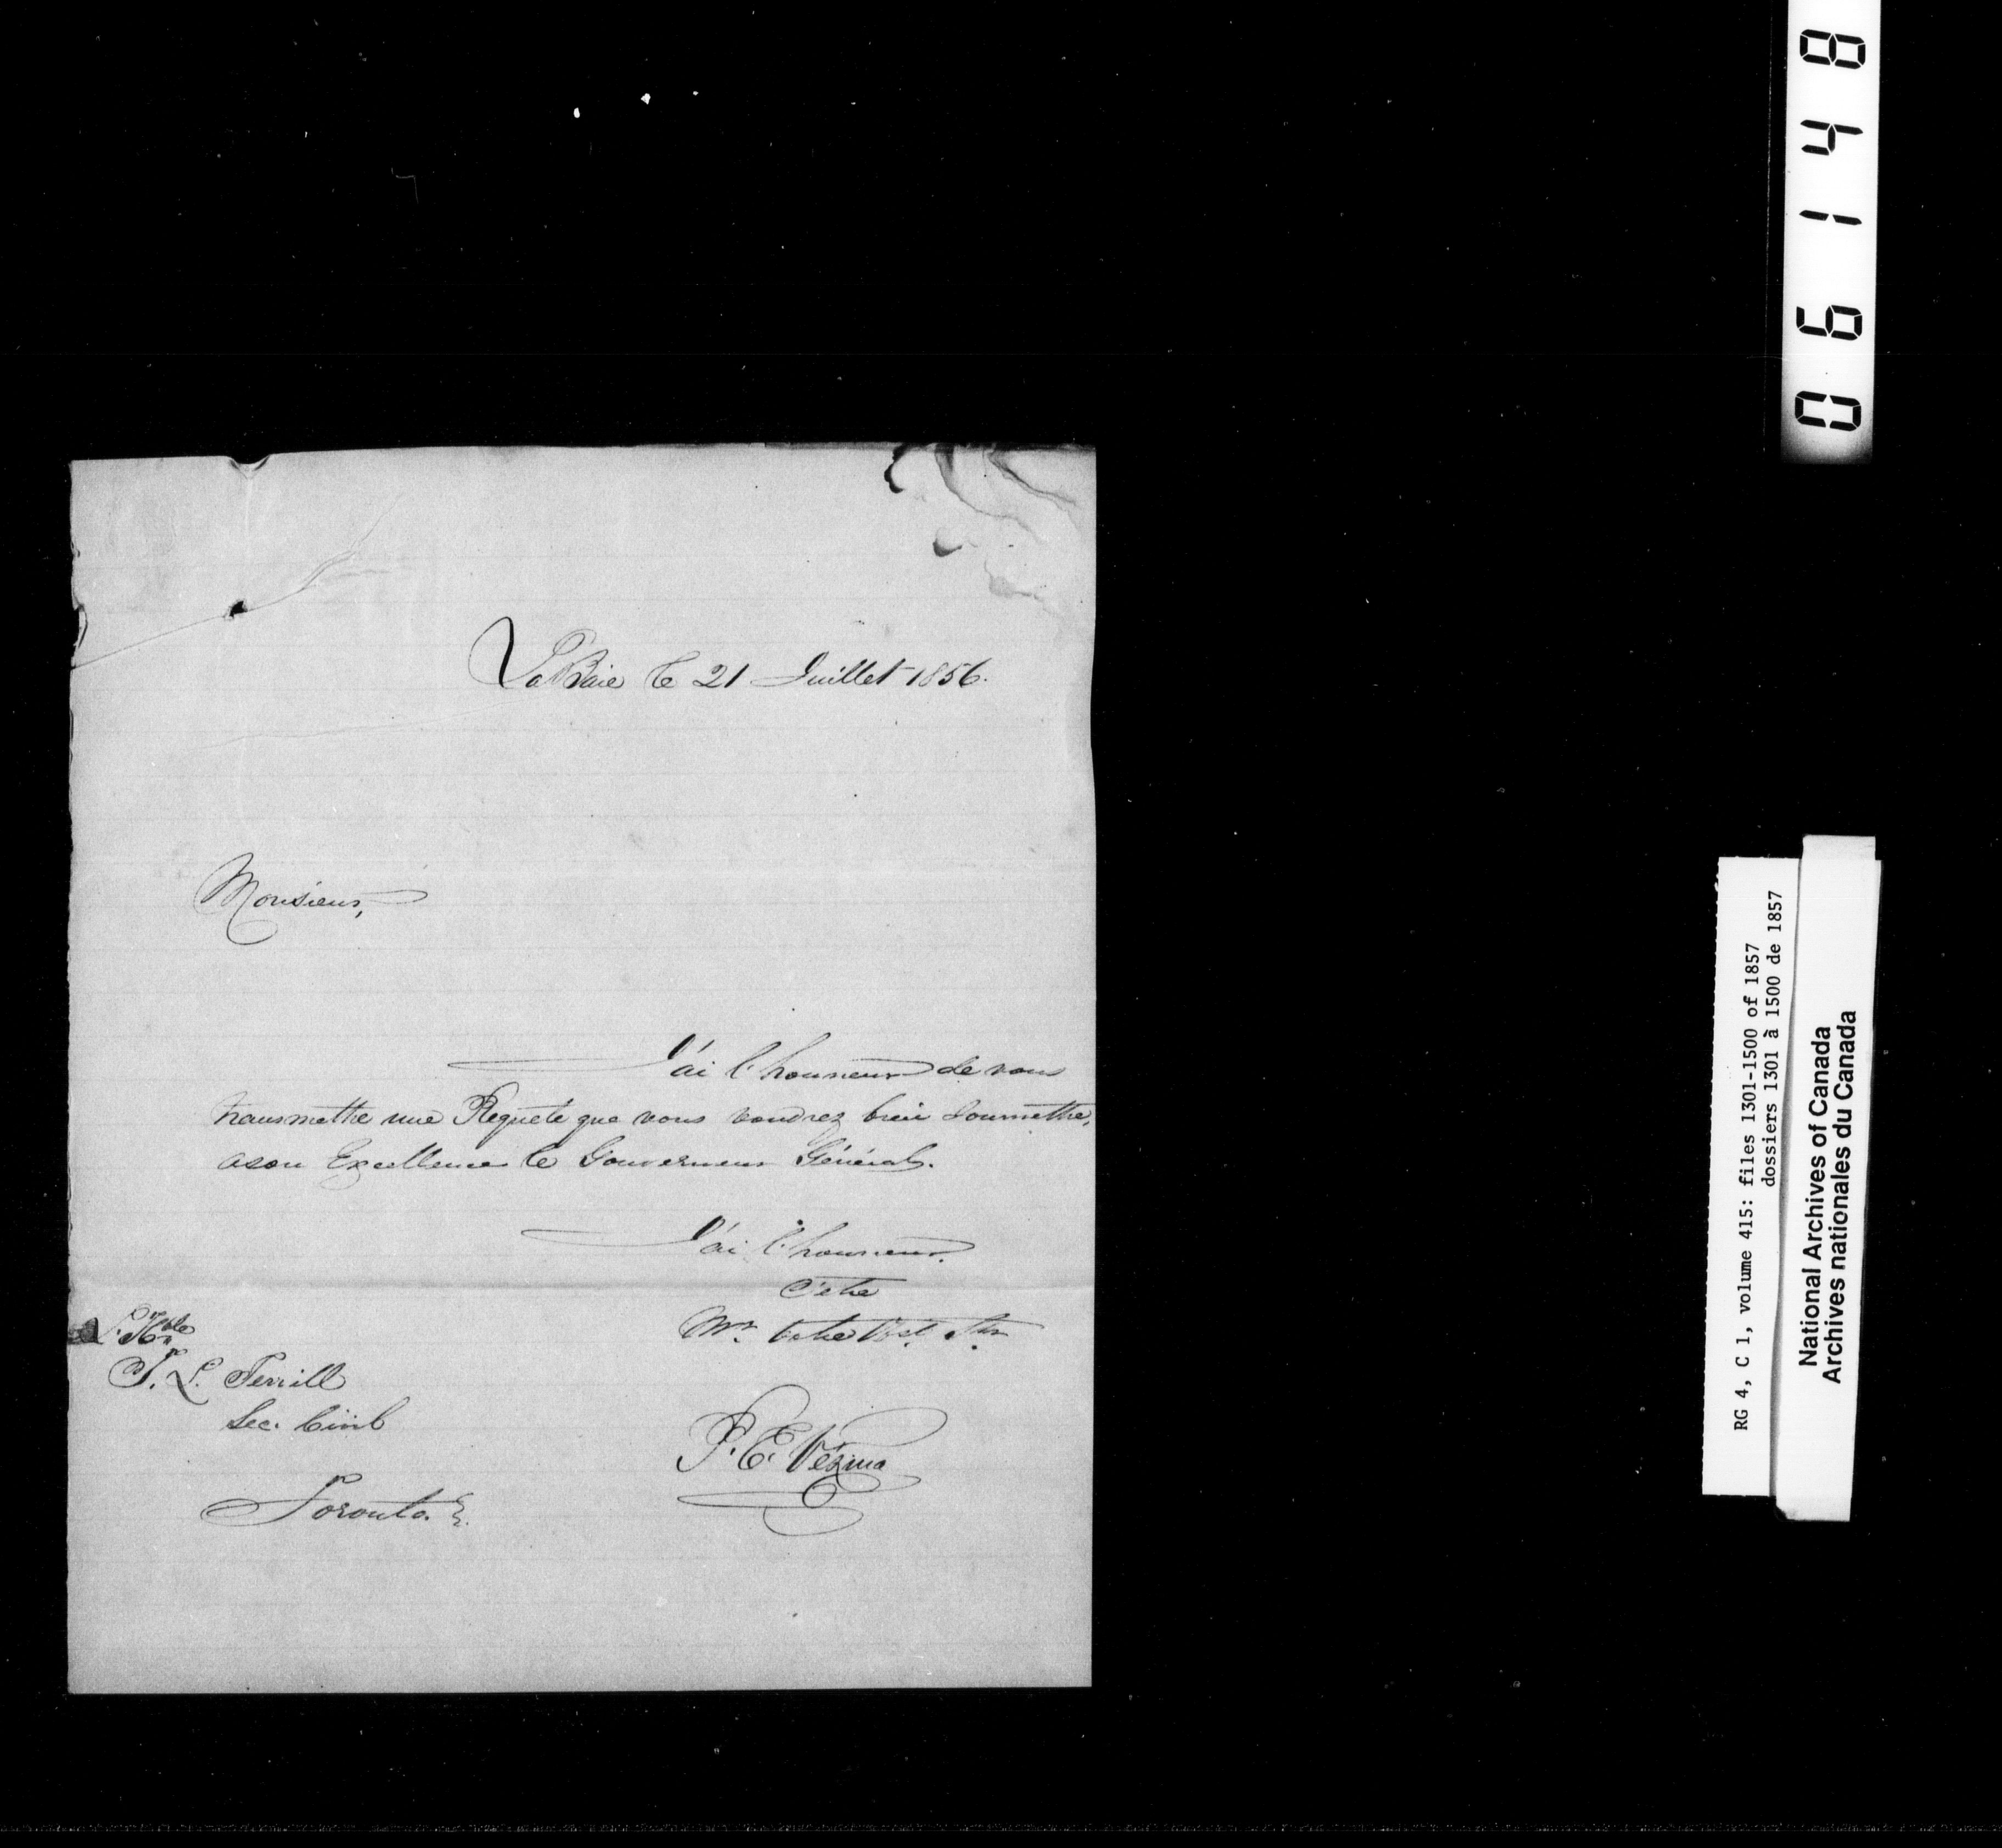 LaBaie le 21 Juillet 1856.
Monsieur,
J'ai l'honneur de vous
transmettre une Requete que vous voudrez bien soumettre,
a son Excellence le Gouverneur Général.
J'ai l'honneur.
d'etre
Mr. Votre
L'Hble
T. L. Terrill
Sec. Civil
Toronto.
P. E. Vézina
06148
RG 4, C 1, volume 415: files 1301-1500 of 1857
dossiers 1301 à 1500 de 1857
National Archives of Canada
Archives nationales du Canada